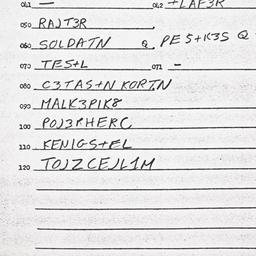 041 — 042 +LAF3R
050 RAJT3R
060 SOLDATN Q, PE5+K3S Q
070 TES+L 071 –
080 C3TAS+N KORT.N
090 MALK3PIK8
100 POJ3PHERC
110 KENIGS+EL
120 TOJZCEJL1M